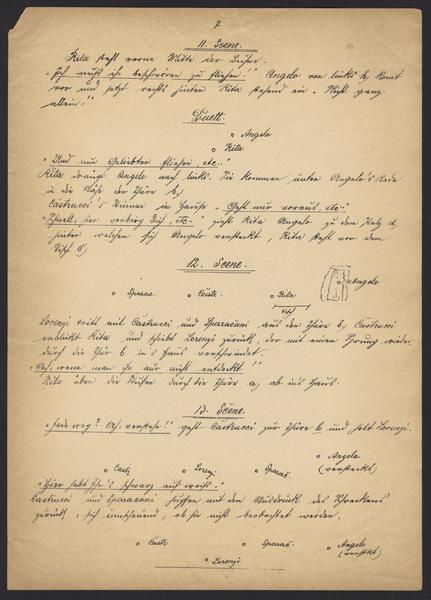 7
11. Scene.
Rita steht vorne Mitte der Bühne.
"Ich muß ihn beschwören zu fliehen!" Angelo von links b, kommt
vor und setzt rechts hinter Rita stehend ein "Nicht ganz
allein!"
Duett.
o Angelo
o Rita
"Und nun Geliebter fliehen etc."
Rita drängt Angelo nach links. Sie kommen unter Angelo's Rede
in die Nähe der Thüre b,
Castrucci's Stimme im Hause "Geht nur voraus etc."
"Schnell, hier verbirg Dich etc." zieht Rita Angelo zu dem
hinter welchem sich Angelo versteckt, Rita steht vor dem
Tisch
12. Scene.
o Sparac. o Castr. o Rita o Angelo
Tisch
Lorenzi tritt mit Castrucci und Sparacani aus der Thüre b, Castrucci
erblickt Rita und schiebt Lorenzi zurück, der mit einem Sprung wieder
durch die Thür b in's Haus verschwindet.
"Ach, wenn man ihn nur nicht entdeckt!"
Rita über die Stufen durch die Thüre a, ab ins Haus.
13. Scene.
"Jede weg? Ach, verstehe!" geht Castrucci zur Thüre b und holt Lorenzi.
o Castr. o Lorenzi o Sparac. o Angelo
(versteckt)
"Hier habt Ihr's schwarz auf weiß!"
Castrucci und Sparacani mit dem Ausdruck des Schreckens
zurück, sich umschauend, ob sie nicht beobachtet werden.
o Castr. o Sparac. o Angelo
(versteckt)
o Lorenzi